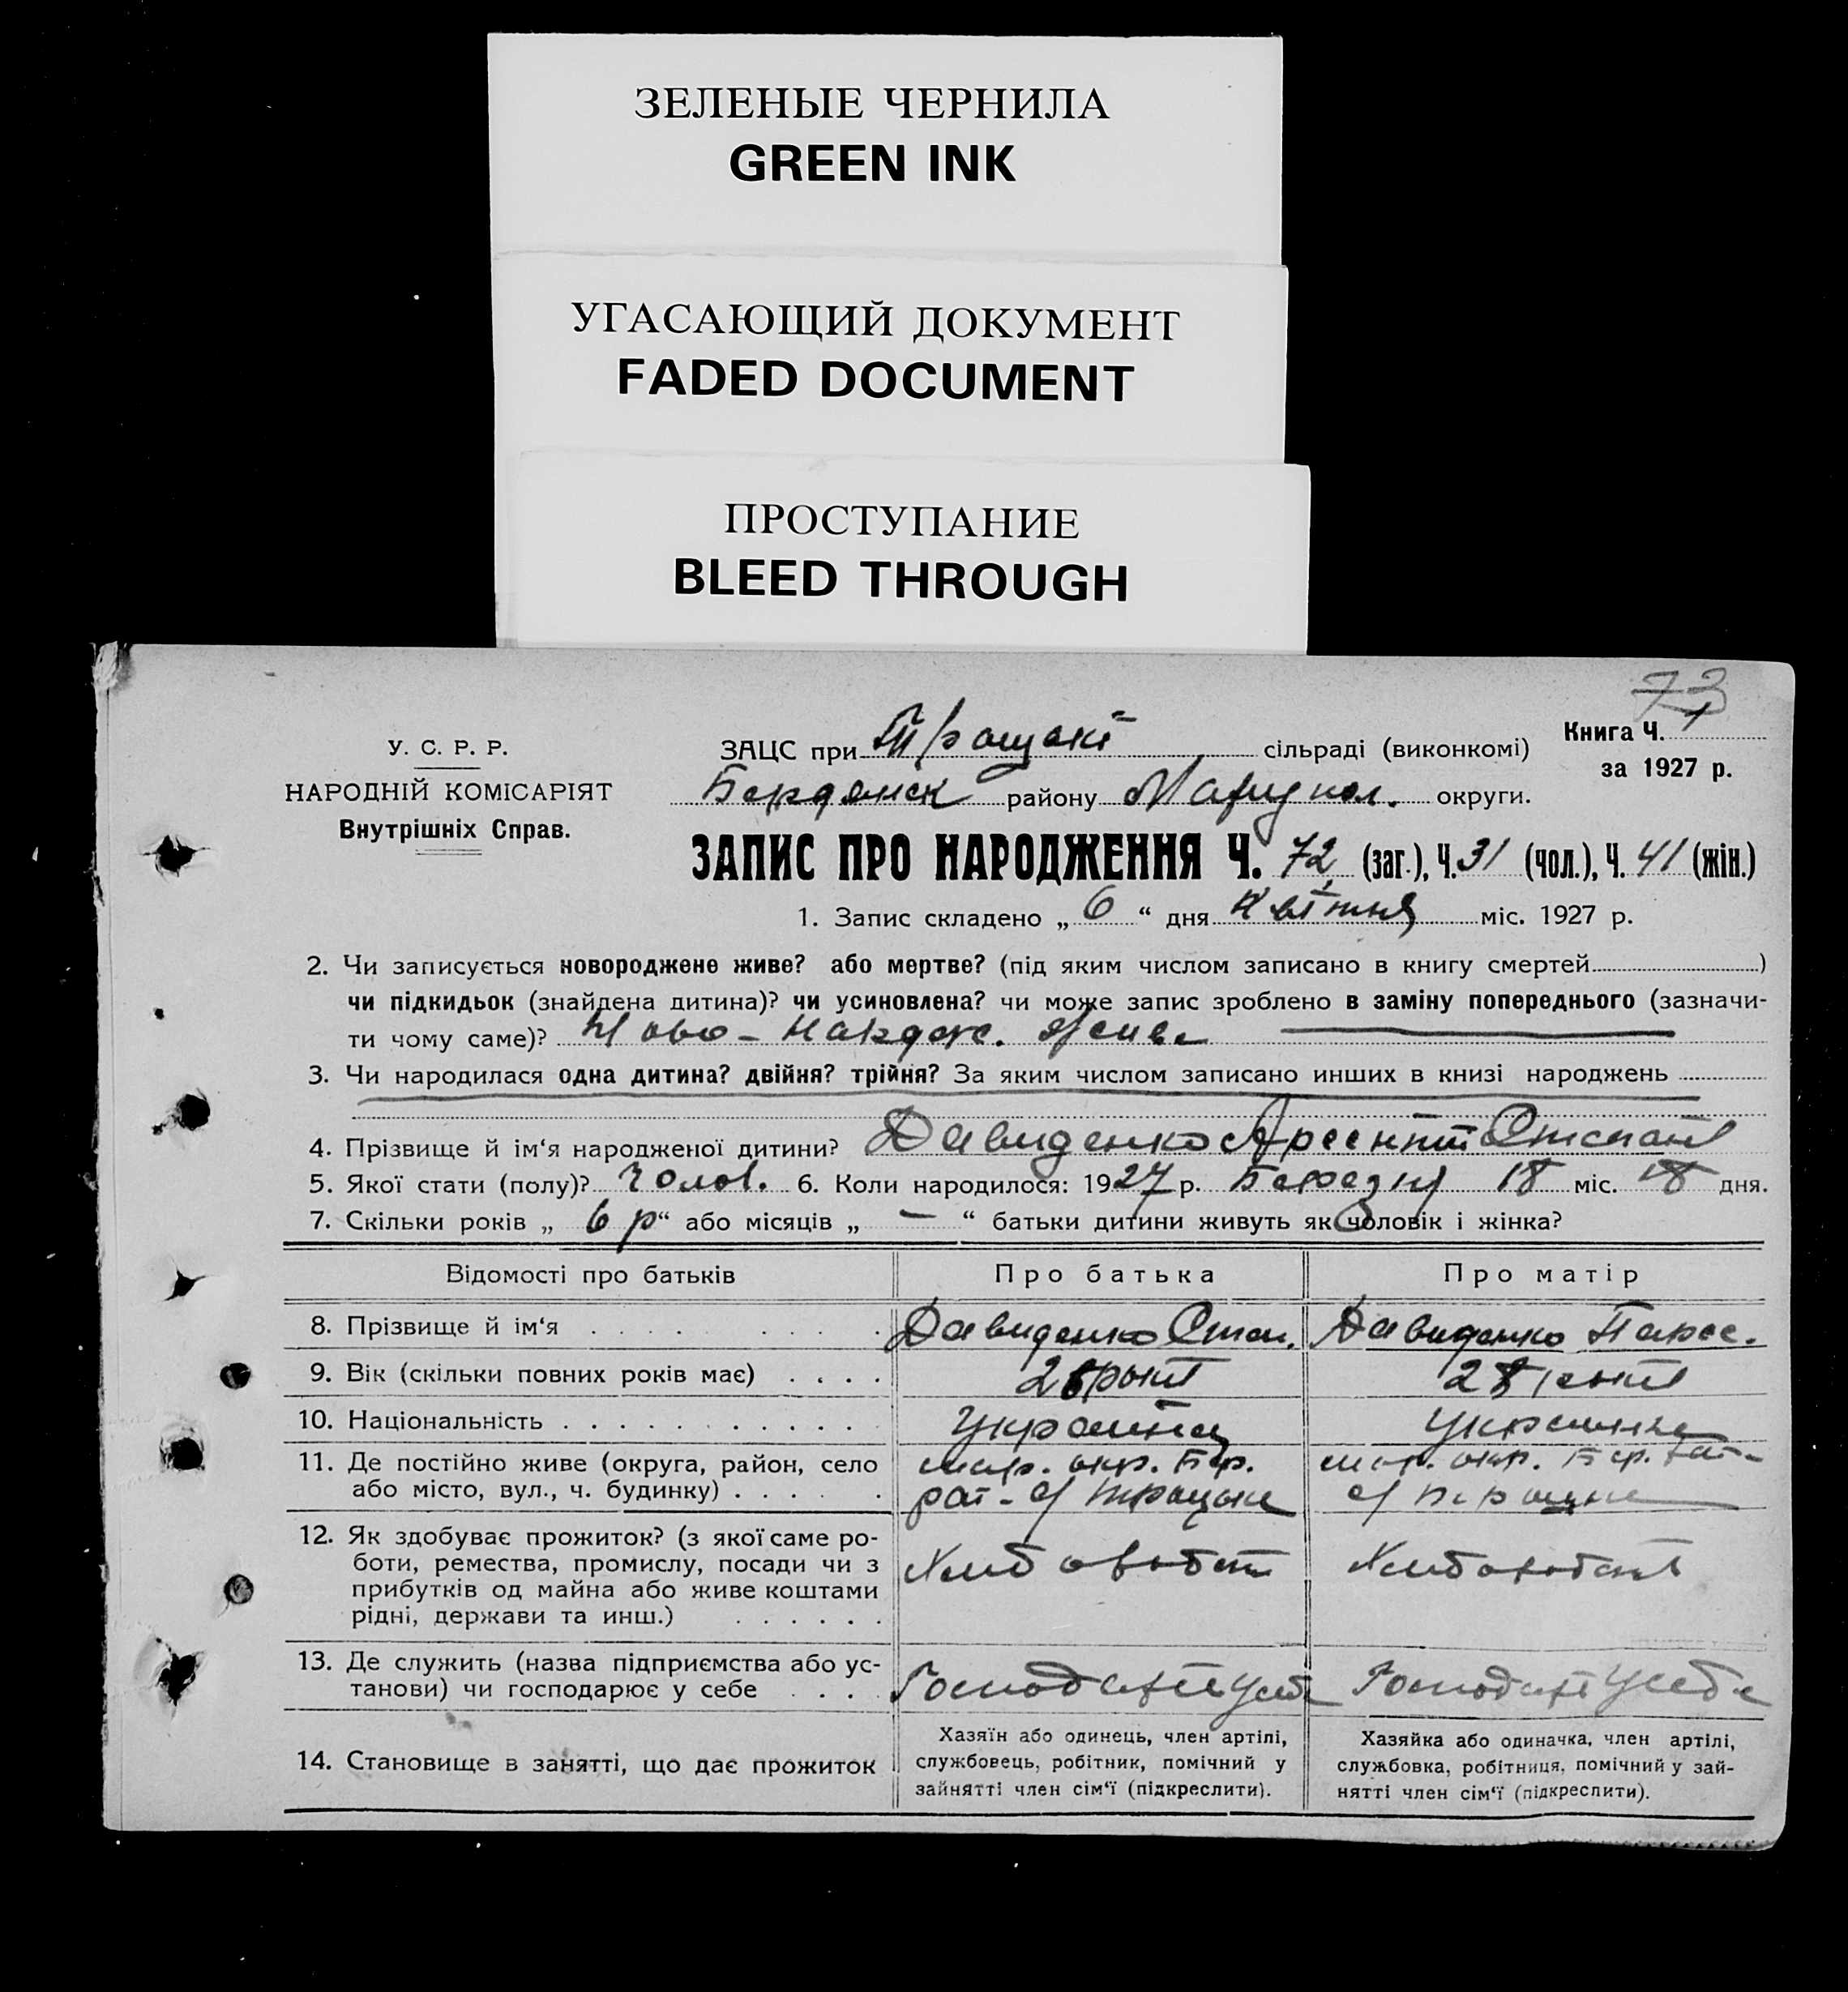 ЗЕЛЕНЫЕ ЧЕРНИЛА
GREEN INK
УГАСАЮЩИЙ ДОКУМЕНТ
FADED DOCUMENT
ПРОСТУПАНИЕ
BLEED THROUGH
73
У. С. Р. Р.
НАРОДНІЙ КОМІСАРІЯТ
Внутрішніх Справ.
ЗАЦС при Троцькі сільраді (виконкомі)
Книга Ч. 1
за 1927 р.
Бердянськ району Маріупол. округи.
ЗАПИС ПРО НАРОДЖЕННЯ Ч. 72 (заг.), Ч. 31 (чол.), Ч. 41 (жін.)
1. Запис складено „ 6 “ дня Квітня міс. 1927 р.
2. Чи записується новороджене живе? або мертве? (під яким числом записано в книгу смертей )
чи підкидьок (знайдена дитина)? чи усиновлена? чи може запис зроблено в заміну попереднього (зазначи-
ти чому саме)? Ново-
3. Чи народилася одна дитина? двійня? трійня? За яким числом записано инших в книзі народжень
4. Прізвище й ім‘я народженої дитини? Давиденко
5. Якої стати (полу)? Чолов. 6. Коли народилося: 1927 р. Березня 18 міс. 18 дня.
7. Скільки років „ 6 р “ або місяців „ — “ батьки дитини живуть як чоловік і жінка?
Відомості про батьків Про батька Про матір
8. Прізвище й ім‘я Давиденко Степ. Давиденко Парас.
9. Вік (скільки повних років має)
10. Національність
11. Де постійно живе (округа, район, село
або місто, вул., ч. будинку)
12. Як здобуває прожиток? (з якої саме ро-
боти, ремества, промислу, посади чи з
прибутків од майна або живе коштами
рідні, держави та инш.)
13. Де служить (назва підприємства або ус-
танови) чи господарює у себе
14. Становище в занятті, що дає прожиток
Хазяїн або одинець, член артілі,
службовець, робітник, помічний у
зайнятті член сім‘ї (підкреслити).
Хазяйка або одиначка, член артілі,
службовка, робітниця, помічний у зай-
нятті член сім‘ї (підкреслити).